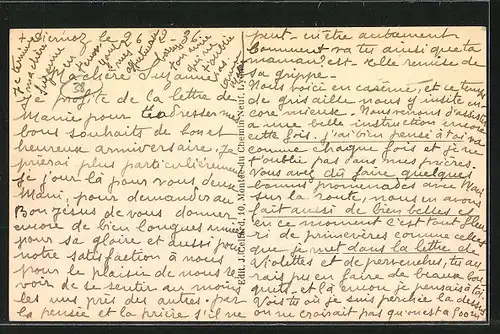 Ma chère Suzanne
Je profite de la lettre de
Mamie pour t'adresser mes
bons souhaits de bon et
heureux anniversaire, je
prierai plus particulièrement
ce jour là pour vous deux
pour demander au
Bon Jésus de vous donner
encore de bien longues
pour sa gloire et aussi pour
notre satisfaction à nous
pour le plaisir de nous re
voir de se sentir au moins
les uns près des autres par
la pensée et la prière s'il ne
Edit. J. Cellard, 10, Montée du Chemin Neuf, Lyon
peut-en être autrement
Comment va tu ainsi que ta
maman, est-elle remise de
sa grippe.
Nous voici en caserne, et ce temps
de grisaille nous y invite en
core mieux. Nous venons d'assister
à une belle instruction encore
cette fois, j'ai bien pensé à toi va
comme chaque fois et je ne
t'oublie pas dans mes prières.
Vous avez dû faire quelques
bonnes promenades avec
sur la route, nous en avons
fait aussi de bien belles et
en ce moment c'est tout fleu
ri de primevères comme celles
que je met dans la lettre et
Violettes et de pervenches, tu au
rais pu en faire de beaux bou
quets, et là encore je pensais à toi.
Vois tu où je suis perchée là dessus
on ne croirait pas qu'on est à 900 m